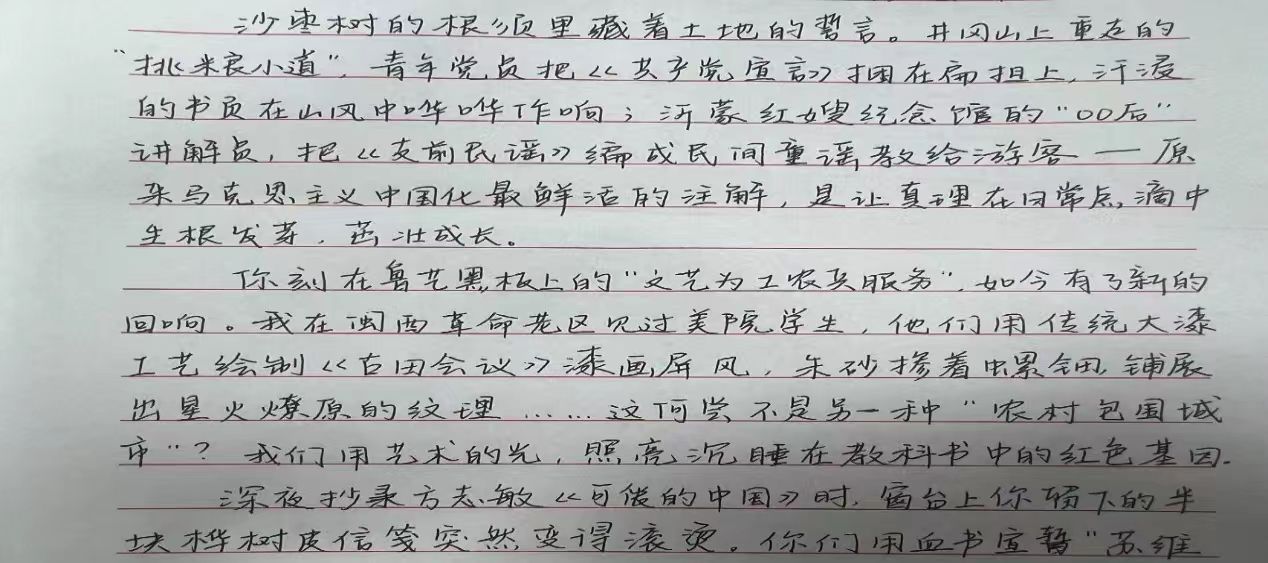 沙枣树的根须里藏着土地的誓言。井冈山上重走的
“挑粮小道”，青年党员把《共产党宣言》捆在扁担上，汗浸
的书页在山风中哗哗作响；沂蒙红嫂纪念馆的“00后”
讲解员，把《支前民谣》编成民间童谣教给游客——原
来马克思主义中国化最鲜活的注解，是让真理在日常点滴中
生根发芽，茁壮成长。
你刻在鲁艺黑板上的“文艺为工农兵服务”，如今有了新的
回响。我在闽西革命老区见过美院学生，他们用传统大漆
工艺绘制《古田会议》漆画屏风，朱砂掺着螺钿，铺展
出星火燎原的纹理……这何尝不是另一种“农村包围城
市”？我们用艺术的光，照亮沉睡在教科书中的红色基因。
深夜抄录方志敏《可爱的中国》时，窗台上你留下的半
块桦树皮信笺突然变得滚烫。你们用血书宣誓“苏维